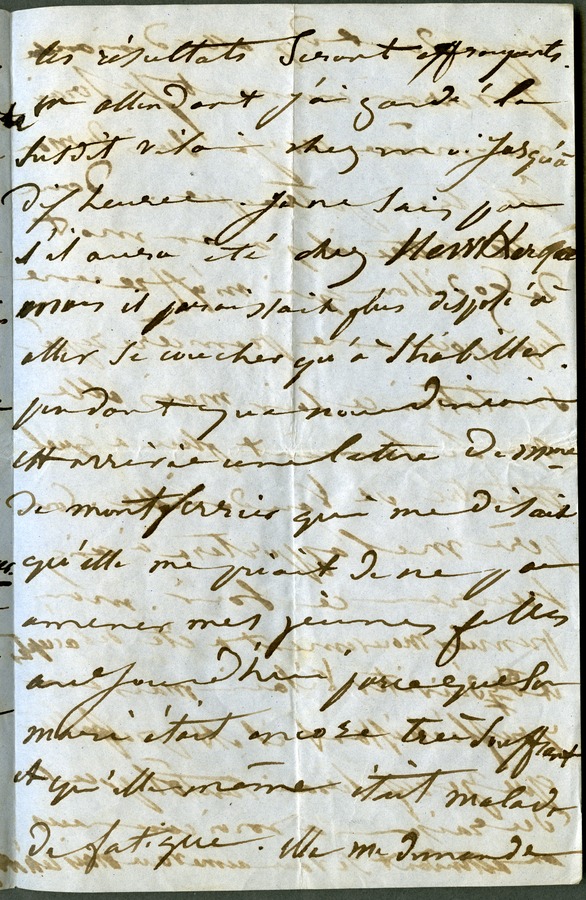 les résultats seront effrayants.
en attendant j'ai gardé la
susdit vilain chez moi jusqu'à
dix heures. je ne sais pas
s'il aura été chez
mais il paraissait plus disposé à
aller se coucher qu'à s'habiller.
pendant que nous dinions
est arrivée une lettre de Mme
de montferrier qui me disait
qu'elle me priait de ne pas
amener mes jeunes filles
aujourd'hui parce que son
mari était encore très souffrant
et qu'elle même était malade
de fatigue. elle me demande